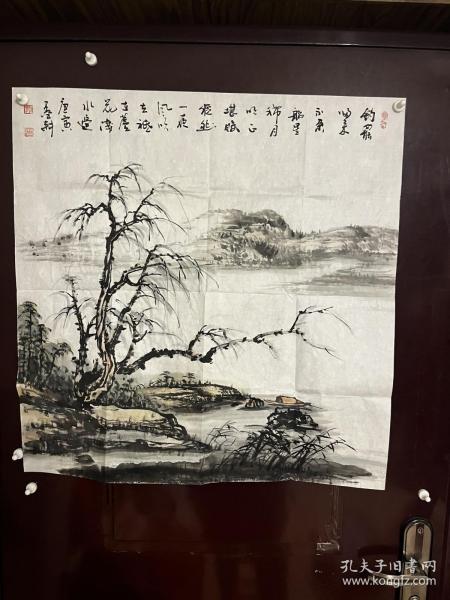 钓罷
归来
不系
船江
村月
落正
堪眠
纵然
一夜
风吹
去祗
在芦
花浅
水边
庚寅
孔夫子旧书网
www.kongfz.com